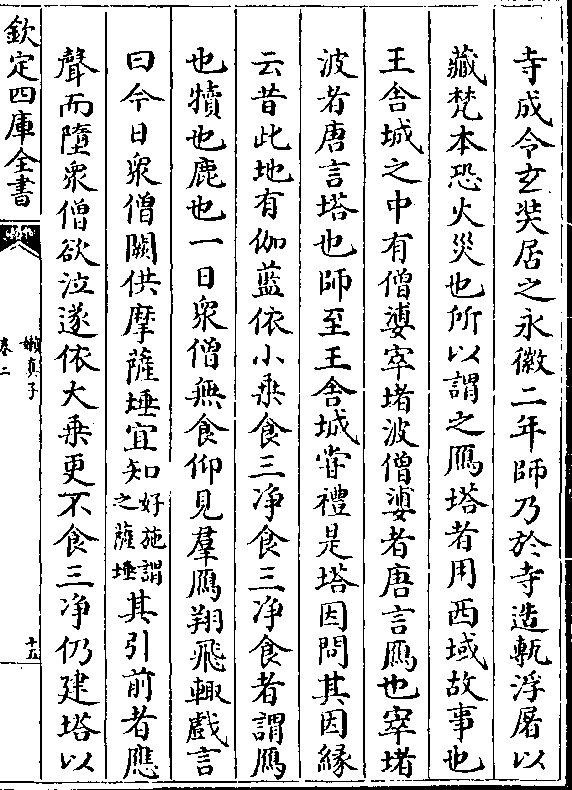 寺成令玄奘居之永徽二年師乃於寺造甎浮屠以
藏梵本恐火災也所以謂之鴈塔者用西域故事也
王舍城之中有僧婆窣堵波僧婆者唐言鴈也窣堵
波者唐言塔也師至王舍城嘗禮是塔因問其因緣
云昔此地有伽藍依小乘食三净食三净食者謂鴈
也犢也鹿也一日衆僧無食仰見羣鴈翔飛輙戲言
曰今日衆僧闕供摩薩埵宜知好施謂之薩埵其引前者應
聲而墮衆僧欲泣遂依大乘更不食三净仍建塔以
欽定四庫全書
嬾真子
卷二
十五